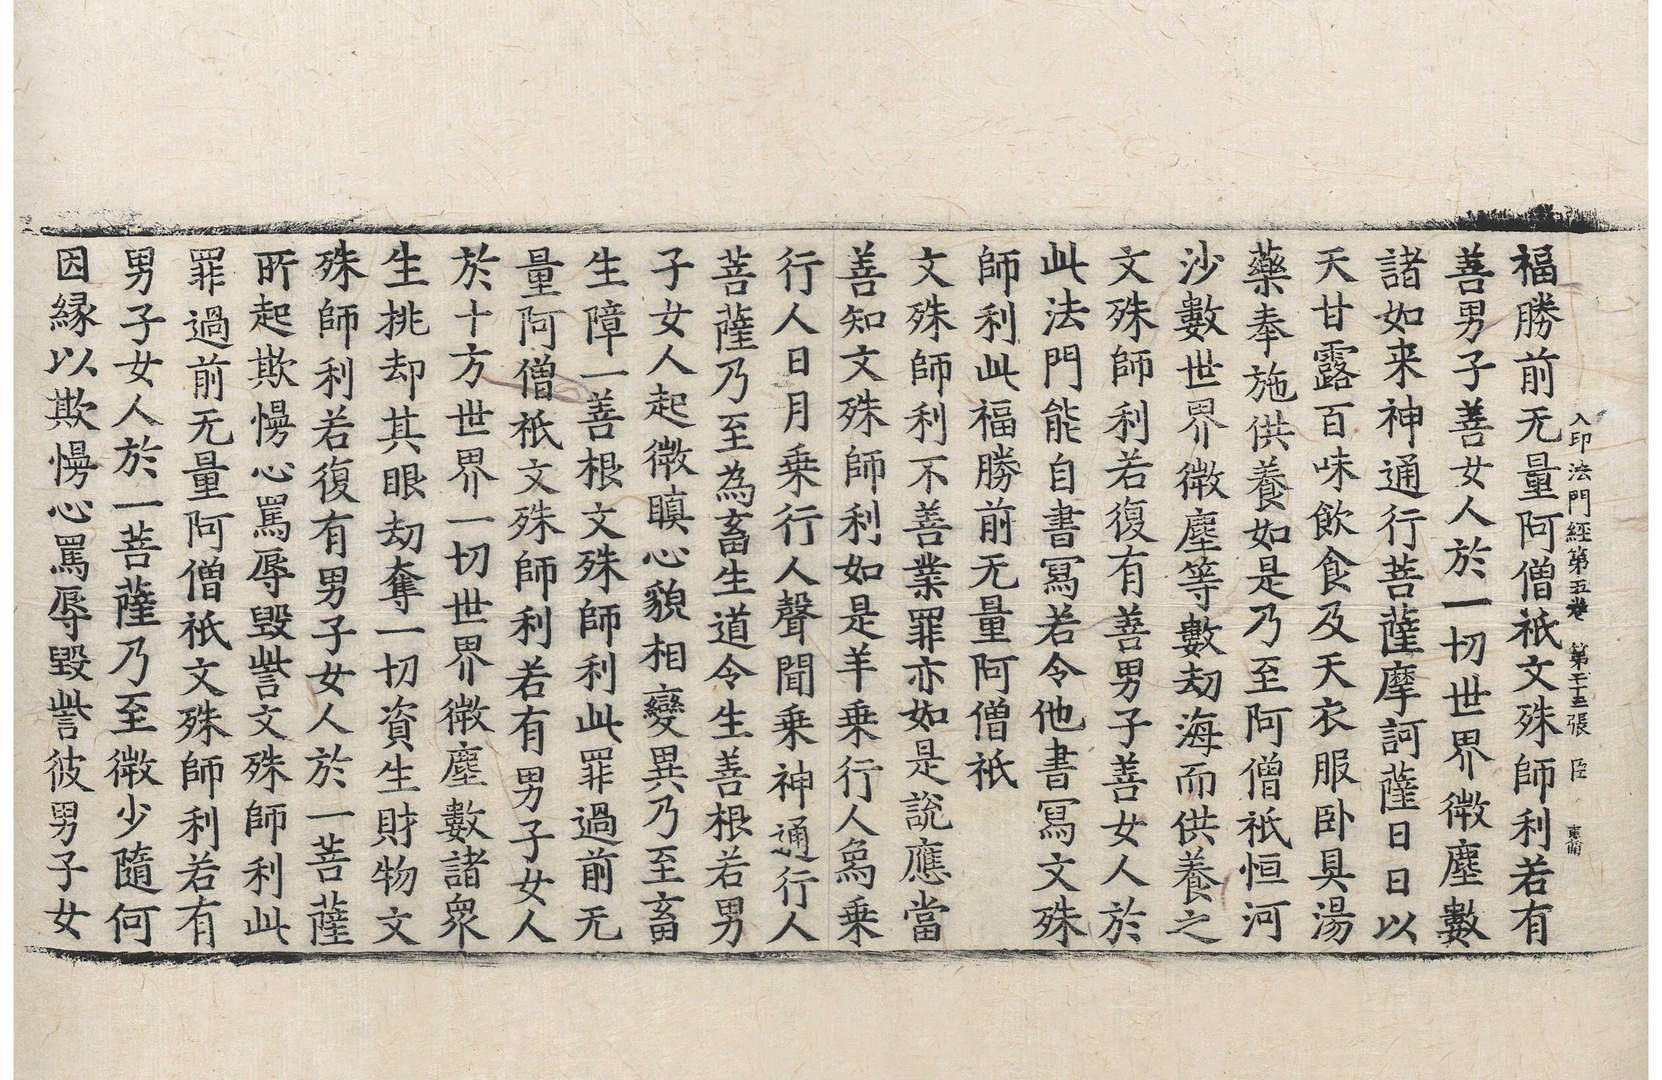 入印法門經第五卷 第二十五張 臣
福勝前无量阿僧祇文殊師利若有
善男子善女人於一切世界微塵數
諸如来神通行菩薩摩訶薩日日以
天甘露百味飲食及天衣服卧具湯
藥奉施供養如是乃至阿僧祇恒河
沙數世界微塵等數劫海而供養之
文殊師利若復有善男子善女人於
此法門能自書冩若令他書冩文殊
師利此福勝前无量阿僧祇
文殊師利不善業罪亦如是說應當
善知文殊師利如是羊乗行人象乗
行人日月乗行人聲聞乗神通行人
菩薩乃至為畜生道令生善根若男
子女人起微瞋心貌相變異乃至畜
生障一善根文殊師利此罪過前无
量阿僧祇文殊師利若有男子女人
於十方世界一切世界微塵數諸衆
生挑却其眼劫奪一切資生財物文
殊師利若復有男子女人於一菩薩
所起欺慢心罵辱毀訾文殊師利此
罪過前无量阿僧祇文殊師利若有
男子女人於一菩薩乃至微少隨何
因縁以欺慢心罵辱毀訾彼男子女